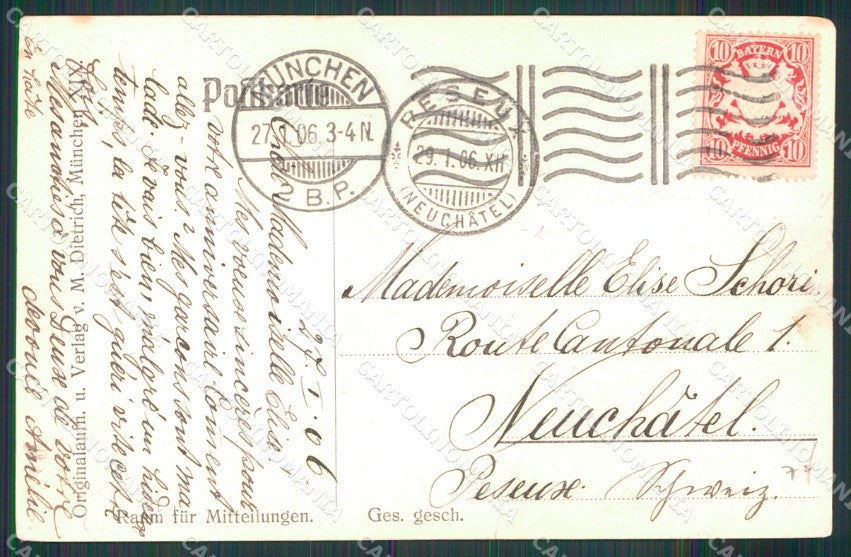 Postkarte
MÜNCHEN
27.1.06.3-4N.
2 B.P.
PESEUX
29.1.06.XII
(NEUCHÂTEL)
10 BAYERN 10
10 PFENNIG 10
Mademoiselle Elise Schori
Route Cantonale 1.
Neuchâtel.
Peseux. Schweiz.
27.I.06
Chère Mademoiselle Elise
Mes voeux sincères pour
votre anniversaire. Comment
allez-vous? Mes garçons sont ma-
lad. Je vais bien, malgré un
la tête s'est guéri vite
Mes à vous deux de votre
Amélie
En hâte
Originalaufn. u. Verlag v. M. Dietrich, München XIV
Raum für Mitteilungen.
Ges. gesch.
CARTOLINOMANIA